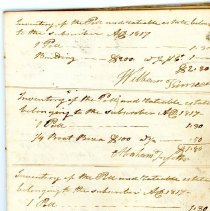 Inventory of the Poll and ratable estate belonging
to the subscriber AD 1817
1 Poll 1.30
Building $200
$2.80
William
Inventory of the Poll and ratable estate
belonging to the subscriber AD 1817
1 Poll 1.30
1/4 Boat $100 50
$1.80
Abraham
Inventory of the Poll and ratable estate
belonging to the subscriber AD 1817
1 Poll 1.30